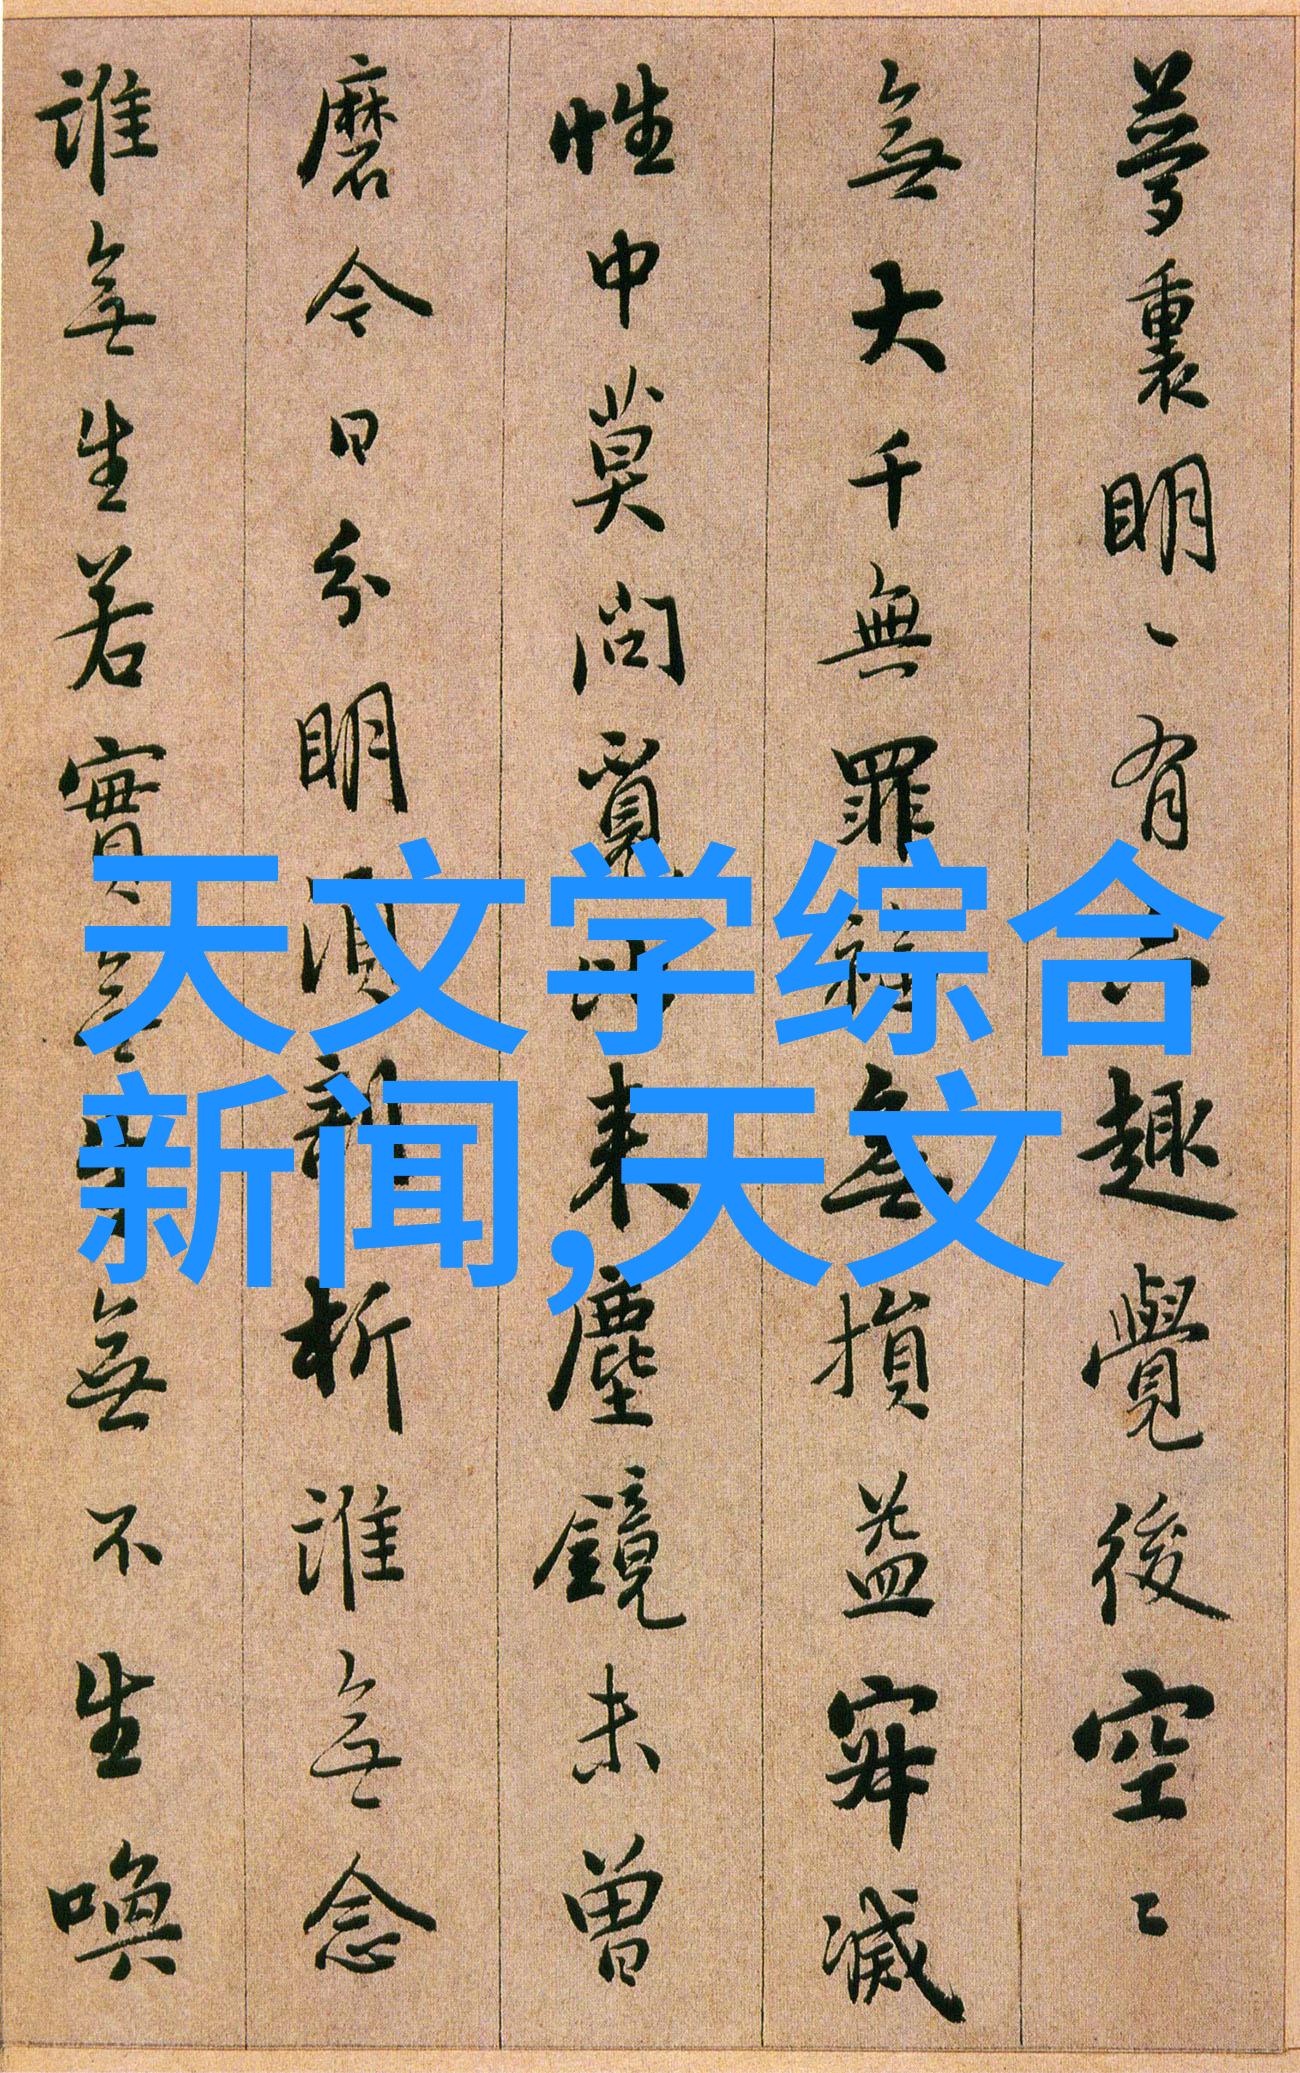 夢裏明〻有六趣覺後空〻
無大千無罪福無損益寂滅
性中莫問覓比來塵鏡未曾
磨今日分明須剖析誰無念
誰無生若實無生無不生喚
天文学综合
新闻,天文